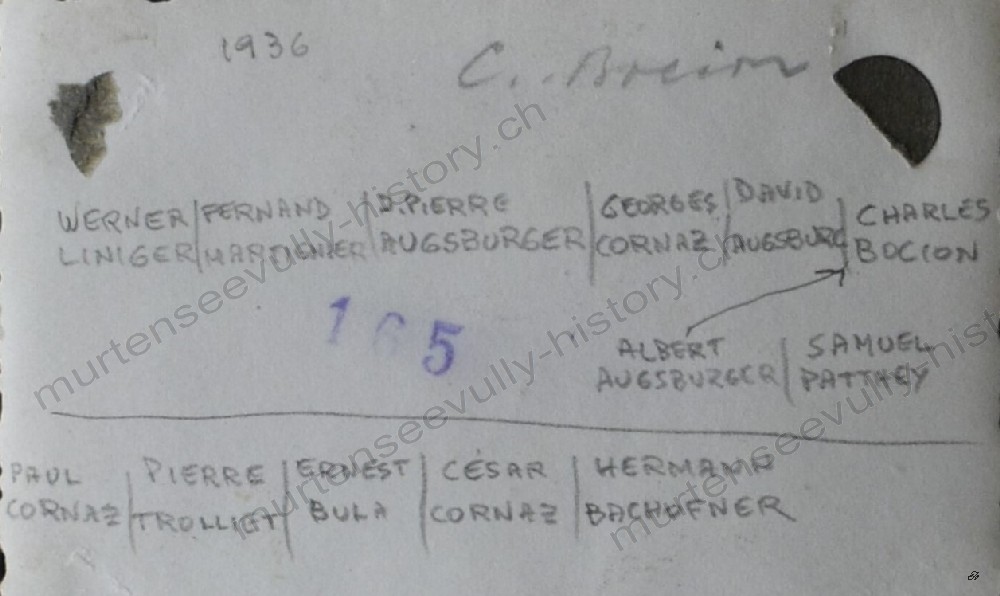 1936
C.
WERNER | FERNAND | D.PIERRE | GEORGES | DAVID | CHARLES
LINIGER | MARTIGNIER | AUGSBURGER | CORNAZ | AUGSBURG | BOCION
165
ALBERT | SAMUEL
AUGSBURGER | PATTHEY
PAUL | PIERRE | ERNEST | CÉSAR | HERMANN
CORNAZ | TROLLIET | BULA | CORNAZ | BACHOFNER
murtenseevully-history.ch
murtenseevully-history.ch
murtenseevully-history